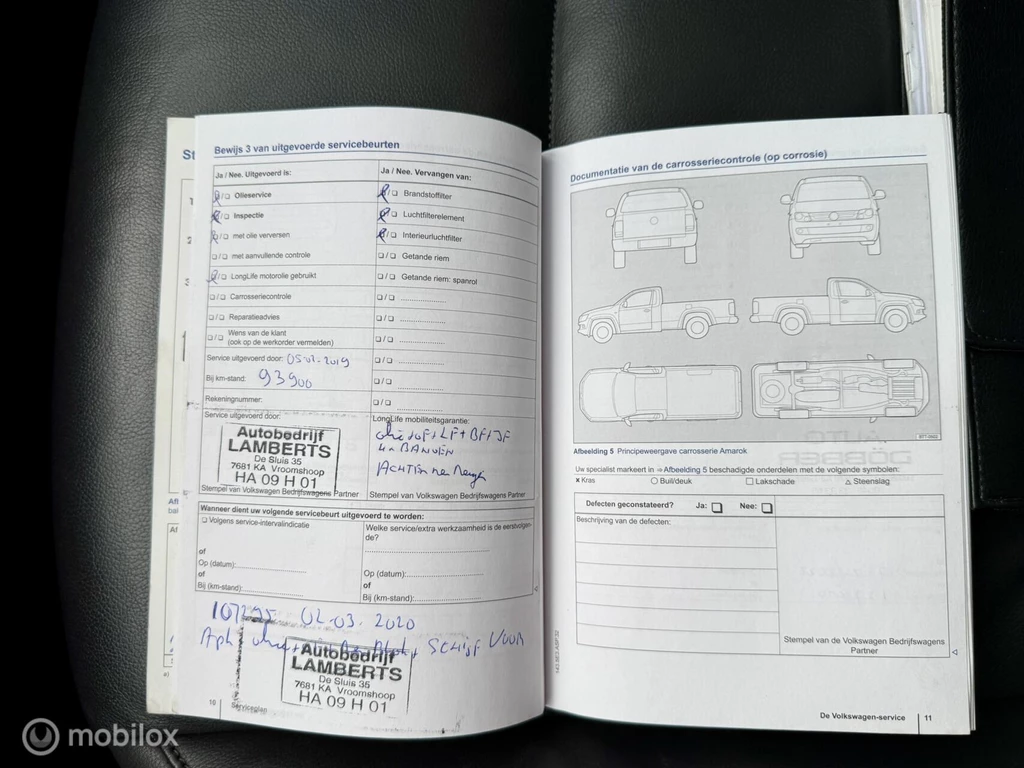 Bewijs 3 van uitgevoerde servicebeurten
Ja / Nee. Uitgevoerd is:
Ja / Nee. Vervangen van:
Olieservice
Brandstoffilter
Inspectie
Luchtfilterelement
met olie verversen
Interieurluchtfilter
met aanvullende controle
Getande riem
LongLife motorolie gebruikt
Getande riem: spanrol
Carrosseriecontrole
Reparatieadvies
Wens van de klant
(ook op de werkorder vermelden)
Service uitgevoerd door: 05-02-2019
Bij km-stand: 93900
Rekeningnummer:
Service uitgevoerd door:
LongLife mobiliteitsgarantie:
Autobedrijf
LAMBERTS
De Sluis 35
7681 KA Vroomshoop
HA 09 H 01
olie+OF+LF+BF+IF
4x BANDEN
ACHTER
Stempel van Volkswagen Bedrijfswagens Partner
Stempel van Volkswagen Bedrijfswagens Partner
Wanneer dient uw volgende servicebeurt uitgevoerd te worden:
Volgens service-intervalindicatie
Welke service/extra werkzaamheid is de eerstvolgen-
de?
of
Op (datum):
of
Bij (km-stand):
Op (datum):
of
Bij (km-stand):
107295 02-03-2020
Apk + olie + SCHIJF VOOR
Autobedrijf
LAMBERTS
De Sluis 35
7681 KA Vroomshoop
HA 09 H 01
10 Serviceplan
Documentatie van de carrosseriecontrole (op corrosie)
Afbeelding 5 Principeweergave carrosserie Amarok
Uw specialist markeert in ⇒ Afbeelding 5 beschadigde onderdelen met de volgende symbolen:
x Kras
Buil/deuk
Lakschade
Steenslag
Defecten geconstateerd? Ja: Nee:
Beschrijving van de defecten:
Stempel van de Volkswagen Bedrijfswagens
Partner
De Volkswagen-service 11
mobilox